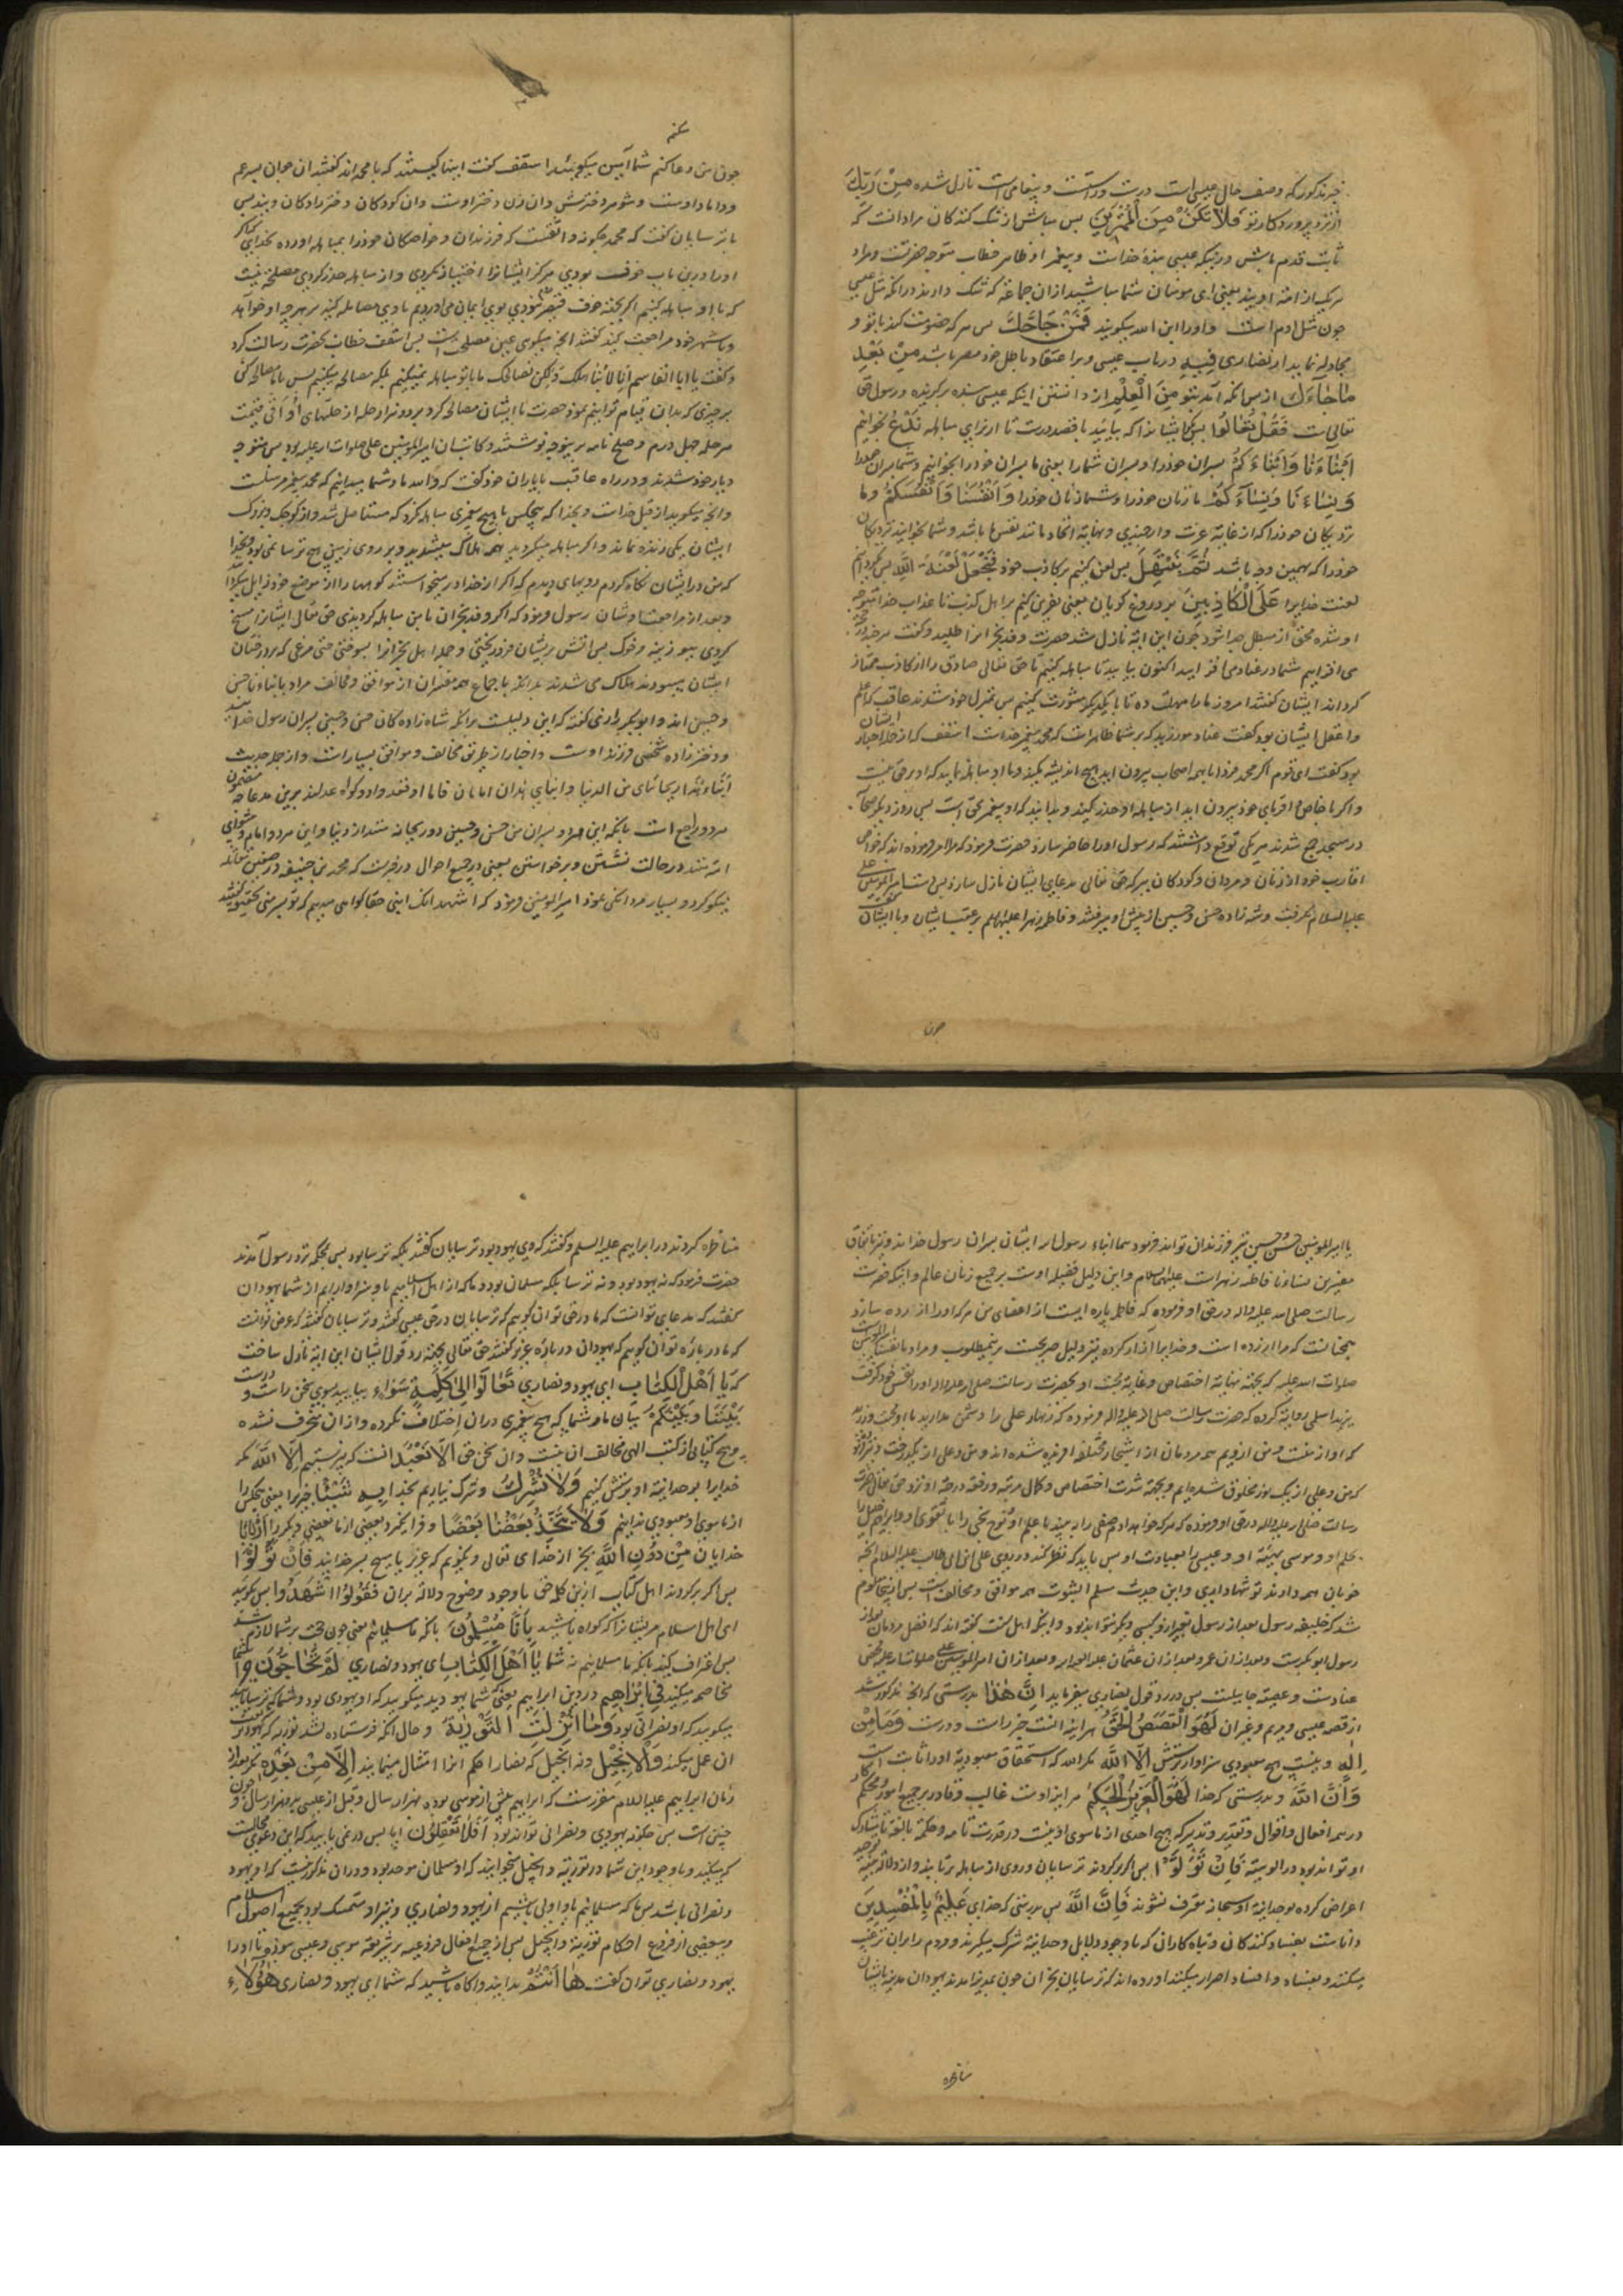 خبر مذکور که وصف حال عیسی است درست و راستست و پیغامی است نازل شده مِنْ رَبِّكَ
از نزد پروردکار تو فَلَا تَكُنْ مِنَ الْمُمْتَرِينَ پس مباش از شک کنندکان مراد انست که
ثابت قدم باش در اینکه عیسی بندهٔ خداست و پیغمبر او ظاهر خطاب متوجه حضرتست و مراد
هر یک از امة اویند یعنی ای مومنان شما مباشید ازان جماعة که شک دارند در انکه مثل عیسی
چون مثل ادم است و او را ابن الله میکویند فَمَنْ حَاجَّكَ پس هر که خصومت کند با تو و
مجادله نماید از نصاری فِيهِ در باب عیسی و بر اعتقاد باطل خود مصر باشد مِنْ بَعْدِ
مَا جَاءَكَ از پس انکه آمد بتو مِنَ الْعِلْمِ از دانستن اینکه عیسی بنده برکزیده و رسول حق
تعالی است فَقُلْ تَعَالَوْا پس بکو ایشانرا که بیائید با قصد درست تا از برای مباهله نَدْعُ بخوانیم
اَبْنَاءَنَا وَاَبْنَاءَكُمْ پسران خود را و پسران شما را یعنی ما پسران خود را بخوانیم و شما پسران خود را
وَنِسَاءَنَا وَنِسَاءَكُمْ ما زنان خود را و شما زنان خود را وَاَنْفُسَنَا وَاَنْفُسَكُمْ و ما
نزدیکان خود را که از غایة عزت و ارجمندی و نهایة اتحاد مانند نفس ما باشد و شما بخوانید نزدیکان
خود را که بهمین وجه باشد ثُمَّ نَبْتَهِلْ پس لعن کنیم بر کاذب خود فَنَجْعَلْ لَعْنَةَ اللّٰهِ پس کردانیم
لعنت خدایرا عَلَى الْكَاذِبِينَ بر دروغ کویان یعنی نفرین کنیم بر اهل کذب تا عذاب خدا متوجه
او شده محق از مبطل جدا شود چون این ایة نازل شد حضرت وفد نجرانرا طلبید و کفت هر چند در حجت
می افزاییم شما در عناد می افزایید اکنون بیایید تا مباهله کنیم تا حق تعالی صادق را از کاذب ممتاز
کرداند ایشان کفتند امروز ما را مهلت ده تا با یکدیکر مشورت کنیم پس بمنزل خود شدند عاقب که اعلم
و اعقل ایشان بود کفت عناد مورزید که بر شما ظاهر است که محمد پیغمبر خداست اسقف که از جمله احبار ایشان
بود کفت ای قوم اکر محمد فردا با همه اصحاب بیرون اید هیچ اندیشه مکنید و با او مباهله نمایید که او بر حق نیست
و اکر با خاص و اقربای خود بیرون اید از مباهله او حذر کنید و بدانید که او پیغمبر بحق است پس روز دیکر صحابه
در مسجد جمع شدند هر یکی توقع داشتند که رسول او را حاضر سازد حضرت فرمود که مرا امر فرموده اند که خواص
اقارب خود از زنان و مردان و کودکان ببر که حق تعالی بدعای ایشان نازل سازد پس دست امیر المومنین علی
علیه السلام بکرفت و شه زاده حسن و حسین از پیش او میرفتند و فاطمه زهرا علیها السلم بر عقب ایشان و با ایشان کفت
چون
سکنه
چون من دعا کنم شما آمین میکویید اسقف کفت اینها کیستند که با محمد اند کفتند ان جوان پسر عم
و داماد اوست و شوهر دخترش و ان زن دختر اوست و ان کودکان دختر زادکان ویند پس
با ترسایان کفت که محمد چکونه واثقست که فرزندان و خواصکان خود را بمباهله اورده بخدای که اکر
او را درین باب خوف بودی هرکز ایشانرا اختیار نکردی و از مباهله حذر کردی مصلحت نیست
که با او مباهله کنیم اکر بجهة خوف قیصر نبودی بوی ایمان می اوردیم با وی مصالحه کنید بر هر چه او خواهد
و با شهر خود مراجعت کنید کفتند انچه میکوی عین مصلحت است پس اسقف خطاب بحضرت رسالت کرد
و کفت یا ابا القاسم انا لا نباهلک و لکن نصالحک ما با تو مباهله نمیکنیم بلکه مصالحه میکنیم پس با ما مصالحه کن
بر چیزی که بدان قیام توانیم نمود حضرت با ایشان مصالحه کرد بر دو هزار حله از حلهای اواقی قیمت
هر حله چهل درم و صلح نامه برینوجه نوشتند و کاتب ان امیر المومنین علی صلوات الله علیه بود پس متوجه
دیار خود شدند و در راه عاقب با یاران خود کفت که والله ما و شما میدانیم که محمد پیغمبر مرسلست
و انچه میکوید از قبل خداست و بخدا که هیچکس با هیچ پیغمبری مباهله نکرد که مستاصل شد و از کوچک و بزرک
ایشان یکی زنده نماند و اکر مباهله میکردید همه هلاک میشدید و بر روی زمین هیچ ترسا نمی بود و بخدا
که من در ایشان نکاه کردم رویهای دیدم که اکر از خدا در میخواستند کوهها را از موضع خود زایل میکرد
و بعد از مراجعت ایشان رسول فرمود که اکر وفد نجران با من مباهله کردندی حق تعالی ایشانرا مسخ
کردی ببوزینه و خوک پس اتش بر ایشان فرود ریختی و جمله اهل نجرانرا بسوختی حتی مرغی که بر درختان
ایشان میبودند هلاک می شدند بدانکه باجماع همه مفسران از موافق و مخالف مراد بابناءنا حسن
و حسین اند و ابو بکر رازی کفته که این دلیلست برانکه شاه زاده کان حسن و حسین پسران رسول خدا اند
و دختر زاده شخصی فرزند اوست و اخبار از طریق مخالف و موافق بسیار است و از جمله حدیث
ابنای هذان ریحانتای من الدنیا و ابنای هذان امامان قاما او قعدا دو کواه عدلند برین مدعا چه مضمون
هر دو راجع است بانکه این هر دو پسران من حسن و حسین دو ریحانه منند از دنیا و این هر دو امام و پیشوای
امة منند در حالت نشستن و برخواستن یعنی در جمیع احوال در خبر است که محمد بن حنیفه در صفین مقاتله
نیکو کرد و بسیار مردانکی نمود امیر المومنین فرمود که اشهد انک ابنی حقا کواهی میدهم که تو پسر منی بتحقیق کفتند
یا امیر المومنین حسن و حسین نیز فرزندان تواند فرمود هما ابناء رسول الله ایشان پسران رسول خدا اند و نیز باتفاق
مفسرین نساءنا فاطمه زهراست علیها السلام و این دلیل فضیله اوست بر جمیع زنان عالم و اینکه حضرت
رسالت صلی الله علیه واله در حق او فرموده که فاطمه پاره ایست از اعضای من هر که او را ازرده سازد
بمجنانست که مرا ازرده است و خدایرا ازار کرده نیز دلیل صریحست برینمطلوب و مراد بانفسنا امیر المومنین است
صلوات الله علیه که بجهة نهایة اختصاص و غایة محبت او بحضرت رسالت صلی الله علیه واله او را نفس خود کرفت
بریدا سلمی روایة کرده که حضرت رسالت صلی الله علیه واله فرموده که زنهار علی را دشمن مدارید با او محبت ورزید
که او از منست و من ازویم همه مردمان از اشجار مختلفه افریده شده اند و من و علی از یک درخت و نیز فرموده
که من و علی از یک نور مخلوق شده ایم و بجهة شدت اختصاص و کمال مرتبة و رفعة درجة او نزد حق تعالی حضرت
رسالت صلی الله علیه واله در حق او فرموده که هر که خواهد ادم صفی را به بیند با علم او و نوح نجی را با تقوی او و ابراهیم خلیل را
بحلم او و موسی بهیبة او و عیسی را بعبادت او پس باید که نظر کند در روی علی ابن ابی طالب علیه السلام انچه
خوبان همه دارند تو تنها داری و این حدیث مسلم الثبوت همه موافق و مخالف است پس از ینجا معلوم
شد که خلیفه رسول بعد از رسول بغیر ازو کسی دیکر نتواند بود و اینکه اهل سنت کفته اند که افضل مردمان بعد از
رسول ابو بکر است و بعد ازان عمر و بعد ازان عثمان علیهم و بعد ازان امیر المومنین علی صلوات الله علیه محض
عنادست و عصبیة جاهلیت پس در رد قول نصاری میفرماید اِنَّ هٰذَا بدرستی که انچه مذکور شد
از قصه عیسی و مریم و عمران لَهُوَ الْقَصَصُ الْحَقُّ هراینه انست خبر راست و درست وَمَا مِنْ
اِلٰهٍ و نیست هیچ معبودی سزاوار پرستش اِلَّا اللّٰهُ مکر الله که استحقاق معبودیة او را ثابت است
وَاِنَّ اللّٰهَ و بدرستی که خدا لَهُوَ الْعَزِيزُ الْحَكِيمُ هر اینه اوست غالب و قادر بر جمیع امور و محکم کار
در همه افعال و اقوال و تقدیر و تدبیر که هیچ احدی از ماسوی او نیست در قدرت تامه و حکمة بالغة تا مشارک
او تواند بود در الوهیة فَاِنْ تَوَلَّوْا پس اکر برکردند ترسایان و روی از مباهله برتابند و از دلائل بینة توحید
اعراض کرده بوحدانیة او سبحانه معترف نشوند فَاِنَّ اللّٰهَ پس بدرستی که خدای عَلِيمٌ بِالْمُفْسِدِينَ
داناست بفساد کنندکان و تباه کاران که با وجود دلایل وحدانیة شرک میکرند و مردم را بران ترغیب
میکنند و بفساد و افساد اصرار میکنند اورده اند که ترسایان نجران چون بمدینه امدند یهودان مدینه با ایشان
مناظره
مناظره کردند در ابراهیم علیه السلم و کفتند که وی یهود بود ترسایان کفتند بلکه ترسا بود پس بمحکمه نزد رسول آمدند
حضرت فرمود که نه یهود بود و نه ترسا بلکه مسلمان بود و ما که از اهل اسلامیم باو سزاوار ایم از شما یهودان
کفتند که مدعای تو انست که ما در حق تو ان کوییم که ترسایان در حق عیسی کفتند و ترسایان کفتند که غرض تو انست
که ما در باره تو ان کوییم که یهودان درباره عزیر کفتند حق تعالی بجهة رد قول ایشان این ایة نازل ساخت
که يَا اَهْلَ الْكِتَابِ ای یهود و نصاری تَعَالَوْا اِلٰى كَلِمَةٍ سَوَاءٍ بیایید بسوی سخن راست و درست
بَيْنَنَا وَبَيْنَكُمْ میان ما و شما که هیچ پیغمبری دران اختلاف نکرده و ازان منحرف نشده
و هیچ کتابی از کتب الهی مخالف ان نیست و ان سخن حق اَلَّا نَعْبُدَ انست که نپرستیم اِلَّا اللّٰهَ مکر
خدایرا بوحدانیة او پرستش کنیم وَلَا نُشْرِكَ و شرک نیاریم بخدا بِهِ شَيْئًا چیزیرا یعنی هیچکس را
از ماسوی او معبودی ندانیم وَلَا يَتَّخِذَ بَعْضُنَا بَعْضًا و فرا نکیرد بعضی از ما بعضی دیکر را اَرْبَابًا
خدایان مِنْ دُونِ اللّٰهِ بجز از خدای تعالی و نکوییم که عزیر یا مسیح پسر خدایند فَاِنْ تَوَلَّوْا
پس اکر برکردند اهل کتاب ازین کلمه حق با وجود وضوح دلالة بران فَقُولُوا اشْهَدُوا پس بکویید
ای اهل اسلام مر ایشانرا که کواه باشید بِاَنَّا مُسْلِمُونَ بانکه ما مسلمانیم یعنی چون حجت بر شما لازم شد
پس اعتراف کنید بانکه ما مسلمانیم نه شما يَا اَهْلَ الْكِتَابِ ای یهود و نصاری لِمَ تُحَاجُّونَ چرا
مخاصمه میکنید فِي اِبْرَاهِيمَ در دین ابراهیم یعنی شما یهودید میکویید که او یهودی بود و شما که ترسایانید
میکویید که او نصرانی بود وَمَا اُنْزِلَتِ التَّوْرَاةُ و حال انکه فرستاده نشد توریة که یهود بر
ان عمل میکنند وَالْاِنْجِيلُ و نه انجیل که نصارا حکم انرا امتثال مینمایند اِلَّا مِنْ بَعْدِهِ مکر بعد از
زمان ابراهیم علیه السلام مقررست که ابراهیم پیش از موسی بوده بهزار سال و قبل از عیسی بدو هزار سال و چون
چنین است پس چکونه یهودی و نصرانی تواند بود اَفَلَا تَعْقِلُونَ ایا پس در نمی یابید که این دعوی محالست
که میکنید و با وجود این شما در توریة و انجیل میخوانید که او مسلمان موحد بود و دران مذکور نیست که او یهود
و نصرانی باشد پس ما که مسلمانیم باو اولی باشیم از یهود و نصاری و نیز او متمسک بود بجمیع اصول اسلام
و ببعضی از فروع احکام توریة و انجیل پس از جمیع افعال فرعیه بر شریعة موسی و عیسی نبوده تا او را
یهود و نصاری توان کفت هَا اَنْتُمْ بدانید و اکاه باشید که شما ای یهود و نصاری هٰؤُلَاءِ